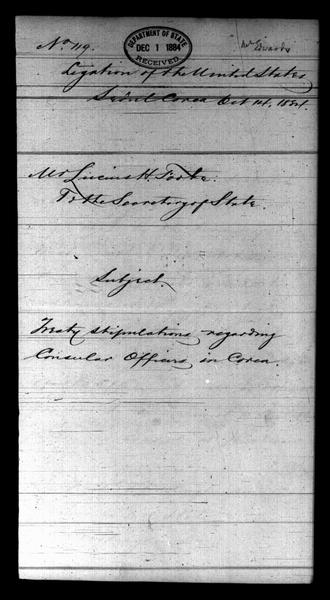 No 119.
DEPARTMENT OF STATE
DEC 1 1884
RECEIVED
Mr Edwards
Legation of the United States
Seoul Corea Oct 14, 1884.
Mr Lucius H. Foote.
To the Secretary of State.
Subject.
Treaty stipulations regarding
Consular Officers in Corea.